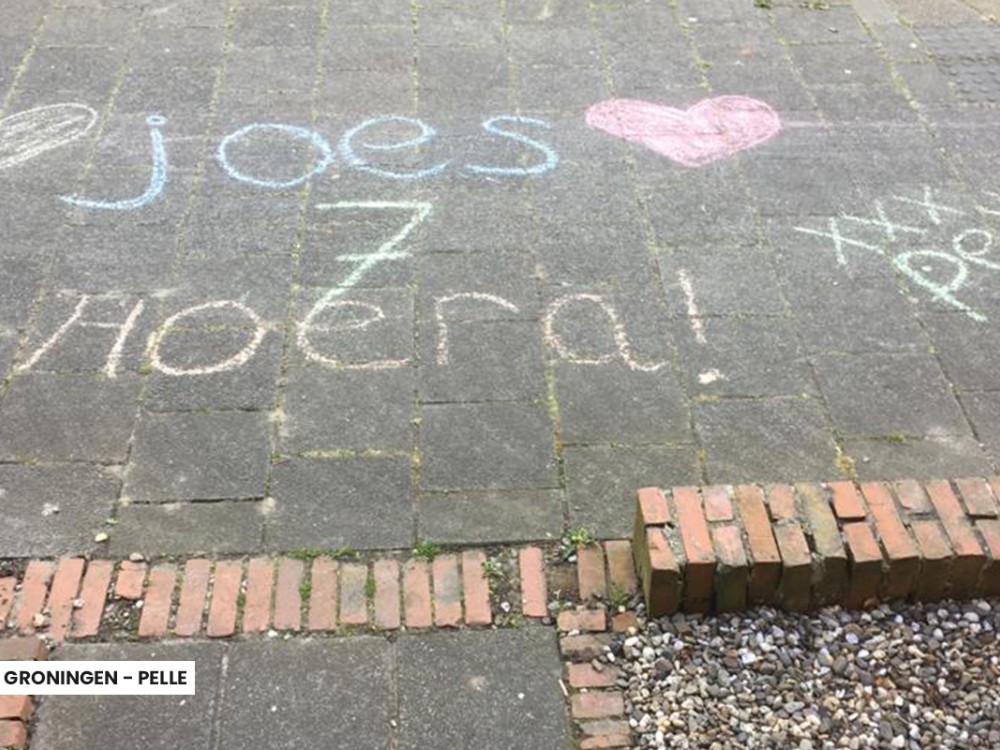 joes
7
xxx
Hoera!
GRONINGEN - PELLE